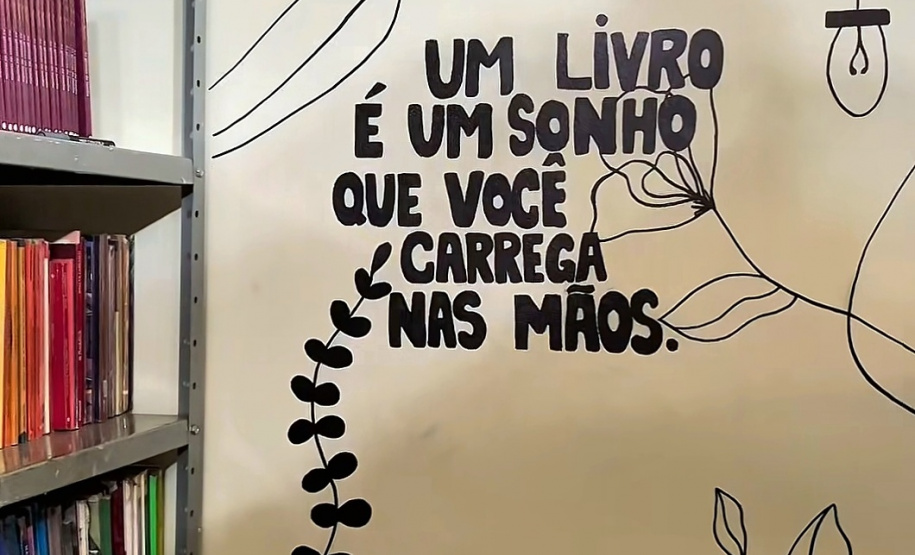 UM LIVRO
É UM SONHO
QUE VOCÊ
CARREGA
NAS MÃOS.